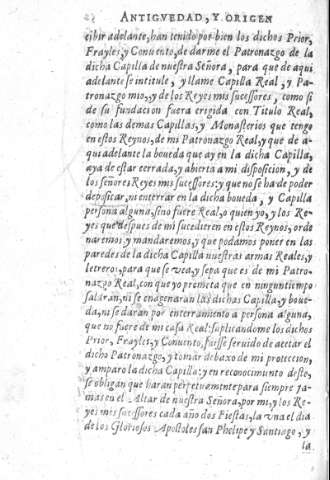 ANTIGVEDAD, Y ORIGEN
cibir adelante, han tenido por bien los dichos Prior,
Frayles, y Conuento, de darme el Patronazgo de la
dicha Capilla de nuestra Señora, para que de aqui
adelante se intitule, y llame Capilla Real, y Pa-
tronazgo mio, y de los Reyes mis sucessores, como si
de su fundacion fuera erigida con Titulo Real,
como las demas Capillas, y Monasterios que tengo
en estos Reynos, de mi Patronazgo Real, y que de a-
qui adelante la boueda que ay en la dicha Capilla,
aya de estar cerrada, y abierta a mi disposicion, y de
los señores Reyes mis sucessores: y que no se ha de poder
depositar, ni enterrar en la dicha boueda, y Capilla
persona alguna, sino fuere Real, o quien yo, y los Re-
yes que despues de mi sucedieren en estos Reynos, orde
naremos y mandaremos, y que podamos poner en las
paredes de la dicha Capilla nuestras armas Reales, y
letreros, para que se vea, y sepa que es de mi Patro-
nazgo Real, con que yo prometa que en ningun tiempo
saldran, ni se enagenaràn las dichas Capilla, y boue-
da, ni se daran por enterramiento a persona alguna,
que no fuere de mi casa Real: suplicandome los dichos
Prior, Frayles, y Conuento, fuesse seruido de acetar el
dicho Patronazgo, y tomar debaxo de mi proteccion,
y amparo la dicha Capilla: y en reconocimiento deste,
se obligan que haran perpetuamente para siempre ja-
mas en el Altar de nuestra Señora, por mi, y los Re-
yes mis sucessores cada año dos Fiestas, la vna el dia
de los Gloriosos Apostoles san Phelipe y Santiago, y
la